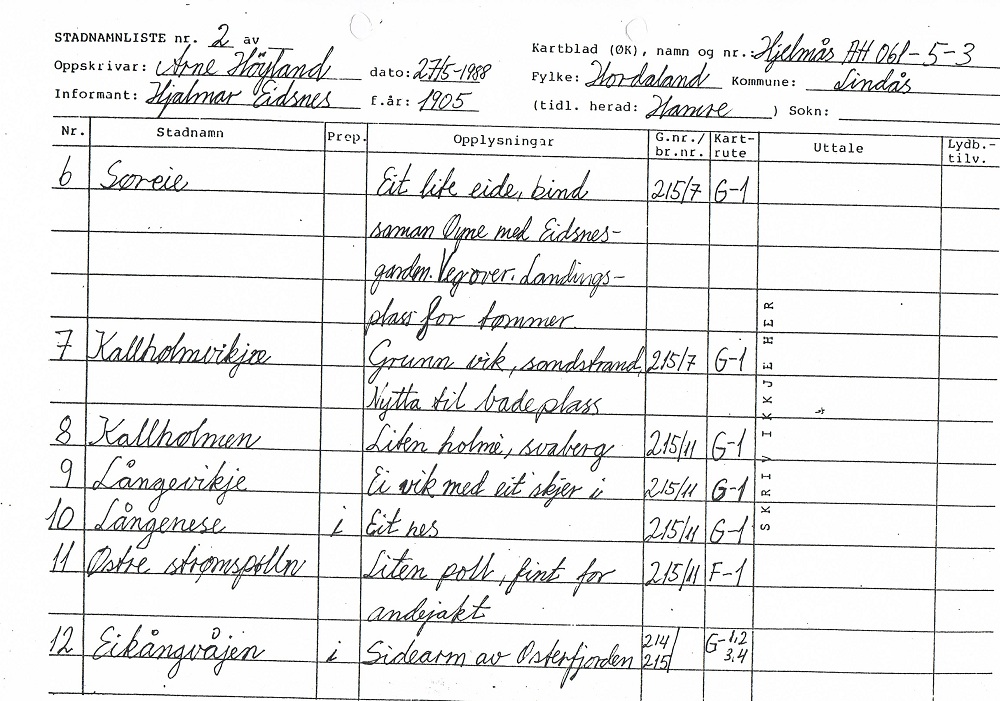 STADNAMNLISTE nr. 2 av
Oppskrivar: Arne Höyland dato: 27/5-1988
Informant: Hjalmar Eidsnes f.år: 1905
Kartblad (ØK), namn og nr.: Hjelmås AH 061-5-3
Fylke: Hordaland Kommune: Lindås
(tidl. herad: Hamre ) Sokn:
Nr. Stadnamn Prep. Opplysningar G.nr./br.nr. Kart-rute Uttale Lydb.-tilv.
6 Søreie Eit lite eide, bind 215/7 G-1
saman Øyne med Eidsnes-
garden. Veg over. Landings-
plass for tømmer.
7 Kallholmvikjæ Grunn vik, sandstrand, 215/7 G-1
Nytta til badeplass
8 Kallholmen Liten holme, svaberg 215/11 G-1
9 Långevikje Ei vik med eit skjer i 215/11 G-1
10 Långenese i Eit nes 215/11 G-1
11 Østre strømspolln Liten poll, fint for 215/11 F-1
andejakt
12 Eikångvåjen i Sidearm av Osterfjorden 214/ 215 G-1,2 3,4
SKRIV IKKJE HER